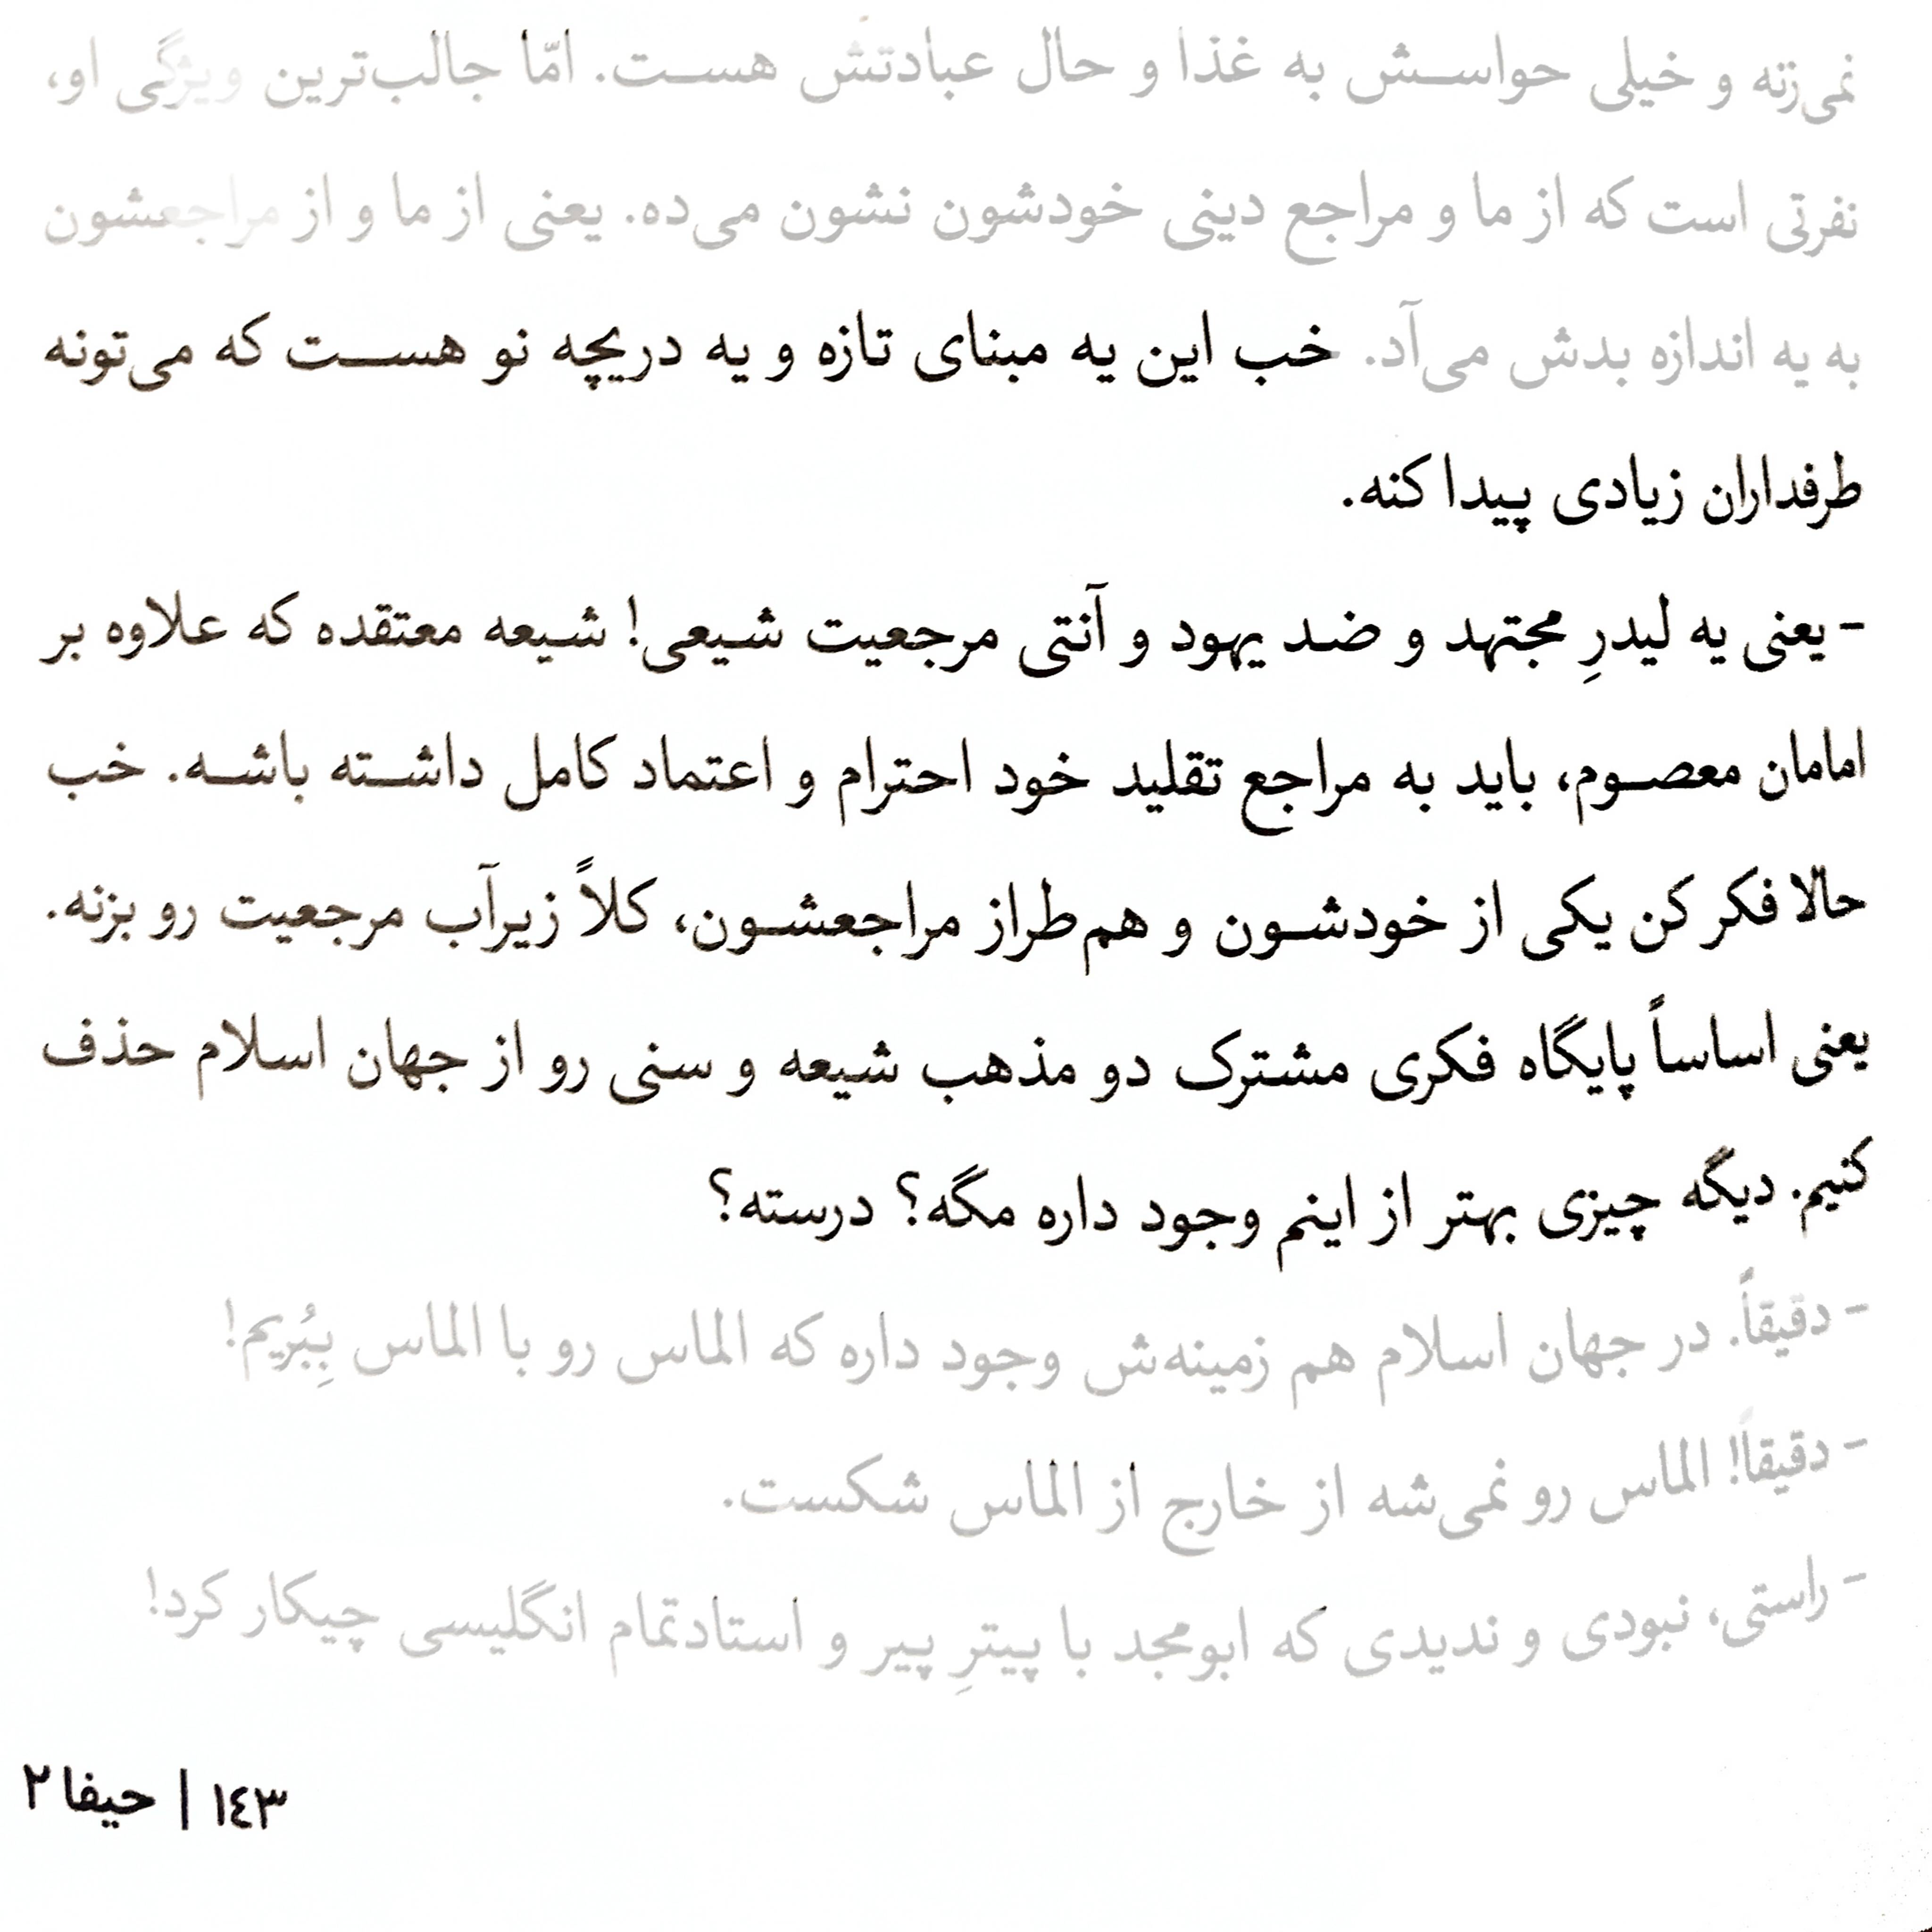 نمی‌زنه و خیلی حواسش به غذا و حال عبادتش هست. امّا جالب‌ترین ویژگی او،
نفرتی است که از ما و مراجع دینی خودشون نشون می‌ده. یعنی از ما و از مراجعشون
به یه اندازه بدش می‌آد. خب این یه مبنای تازه و یه دریچه نو هست که می‌تونه
طرفداران زیادی پیدا کنه.
- یعنی یه لیدرِ مجتهد و ضد یهود و آنتی مرجعیت شیعی! شیعه معتقده که علاوه بر
امامان معصوم، باید به مراجع تقلید خود احترام و اعتماد کامل داشته باشه. خب
حالا فکر کن یکی از خودشون و هم‌طراز مراجعشون، کلاً زیرآب مرجعیت رو بزنه.
یعنی اساساً پایگاه فکری مشترک دو مذهب شیعه و سنی رو از جهان اسلام حذف
کنیم. دیگه چیزی بهتر از اینم وجود داره مگه؟ درسته؟
- دقیقاً. در جهان اسلام هم زمینه‌ش وجود داره که الماس رو با الماس بِبُریم!
- دقیقاً! الماس رو نمی‌شه از خارج از الماس شکست.
- راستی، نبودی و ندیدی که ابومجد با پیترِ پیر و استادتمام انگلیسی چیکار کرد!
١٤٣ | حیفا ٢